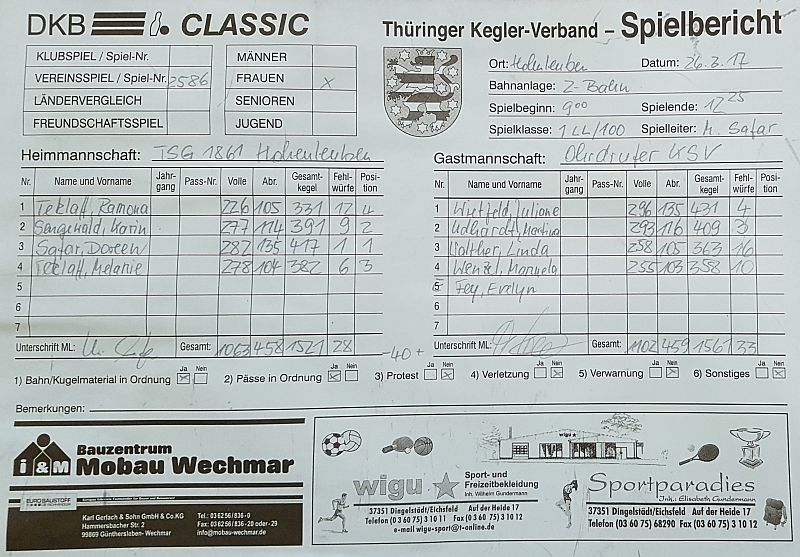 DKB CLASSIC
Thüringer Kegler-Verband – Spielbericht
KLUBSPIEL / Spiel-Nr.
VEREINSSPIEL / Spiel-Nr. 2586
LÄNDERVERGLEICH
FREUNDSCHAFTSSPIEL
MÄNNER
FRAUEN x
SENIOREN
JUGEND
Ort: Hohenleuben Datum: 26.3.17
Bahnanlage: 2-Bahn
Spielbeginn: 9 00 Spielende: 12 25
Spielklasse: 1 LL/100 Spielleiter: M. Safar
Heimmannschaft: TSG 1861 Hohenleuben
Gastmannschaft: Ohrdrufer KSV
Nr. Name und Vorname Jahrgang Pass-Nr. Volle Abr. Gesamtkegel Fehlwürfe Position
1 Teklaff, Ramona 226 105 331 12 4
2 Karin 277 114 391 9 2
3 Safar, Doreen 282 135 417 1 1
4 Teklaff, Melanie 278 104 382 6 3
5
6
7
Unterschrift ML: Gesamt: 1063 458 1521 28
Nr. Name und Vorname Jahrgang Pass-Nr. Volle Abr. Gesamtkegel Fehlwürfe Position
1 Juliane 296 135 431 4
2 Martina 293 116 409 3
3 Walther, Linda 258 105 363 16
4 Wenzel, Manuela 255 103 358 10
5 Fey, Evelyn
6
7
Unterschrift ML: Gesamt: 1102 459 1561 33
-40+
1) Bahn/Kugelmaterial in Ordnung Ja x Nein
2) Pässe in Ordnung Ja x Nein
3) Protest Ja Nein x
4) Verletzung Ja Nein x
5) Verwarnung Ja Nein x
6) Sonstiges Ja Nein x
Bemerkungen:
i&M Bauzentrum
Mobau Wechmar
EUROBAUSTOFF
Karl Gerlach & Sohn GmbH & Co.KG
Hammersbacher Str. 2
99869 Günthersleben- Wechmar
Tel.: 03 62 56 / 836 - 0
Fax: 03 62 56 / 836-20 oder - 29
info@mobau-wechmar.de
wigu
wigu Sport- und
Freizeitbekleidung
Inh. Wilhelm Gundermann
37351 Dingelstädt/Eichsfeld Auf der Heide 17
Telefon (03 60 75) 3 10 11 Fax (03 60 75) 3 10 12
e-mail wigu-sport@t-online.de
Sportparadies
Inh. Elisabeth Gundermann
37351 Dingelstädt/Eichsfeld Auf der Heide 17
Telefon (03 60 75) 68290 Fax (03 60 75) 3 10 12